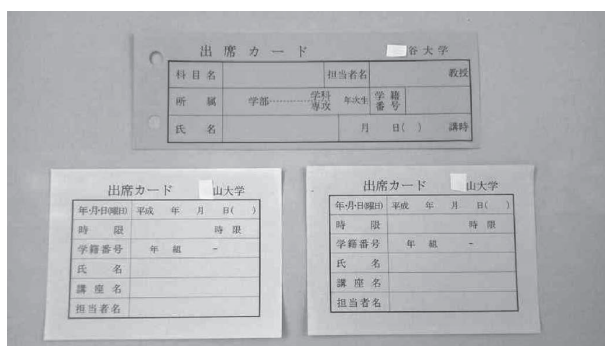 出席カード 谷大学
科目名 担当者名 教授
所属 学部 学科 専攻 年次生 学籍番号
氏名 月 日( ) 講時
出席カード 山大学
年・月・日(曜日) 平成 年 月 日( )
時限 時限
学籍番号 年 組 -
氏名
講座名
担当者名
出席カード 山大学
年・月・日(曜日) 平成 年 月 日( )
時限 時限
学籍番号 年 組 -
氏名
講座名
担当者名